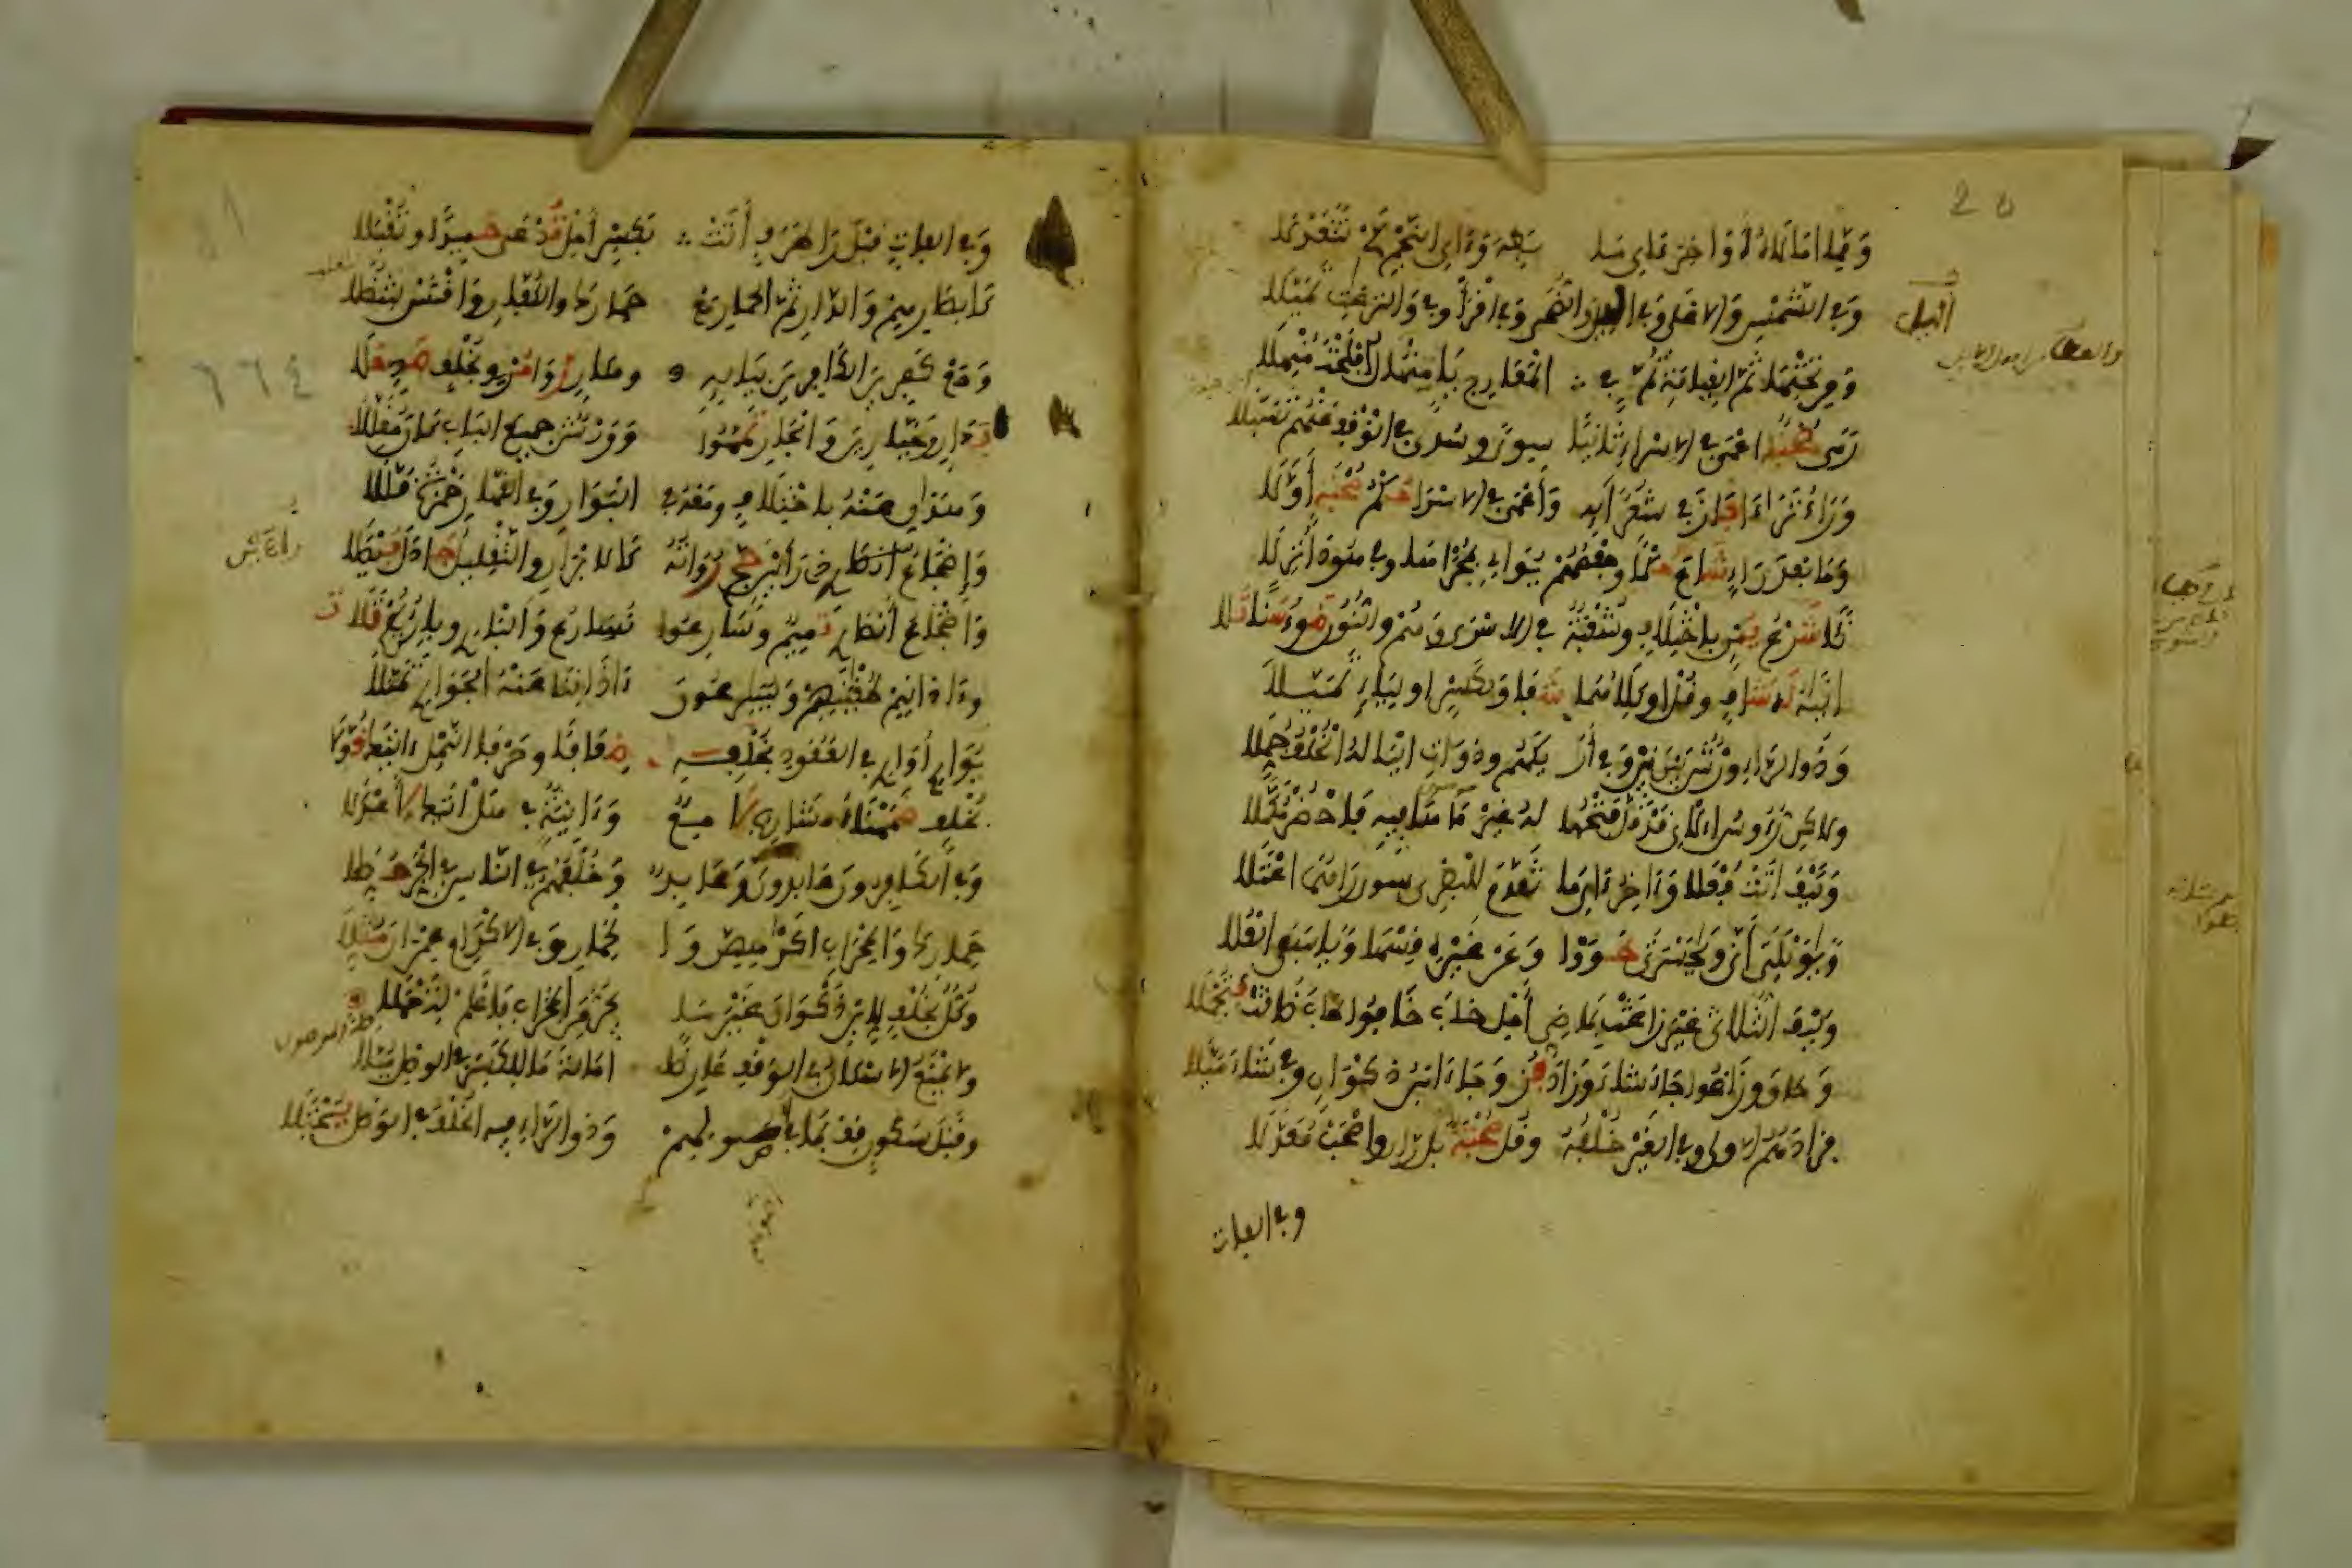 20
ومما امالاه اواخر ءاي ما بطه وءاي النجم كي تتعدلا
وفي الشمس والاعلى وفي اليل والضحى وفي اقرأ وفي والنزعت تميلا
اليل
ومن تحتها ثم القيامة ثم في المعارج يا منهال افلحت منهلا
رمى صحبة اعمى في الاسراء ثانيا سوى وسدى في الوقف عنهم تسبلا
وراء تراءا فاز في شعرايه واعمى في الاسرا حكم صحبة أولا
وما بعد راء شاع حكما وحفصهم يوالي بمجراها وفي هود أنزلا
نئا شرع يمن باختلاف وشعبة في الاسرى وهم والنون ضوء سنا تلا
اناه له شاف وقل او كلاهما شفا ولكسر او لياء تميلا
وذو الراء ورش بين بين وفي أركهم وذوات اليا له الخلف جملا
ولاكن رءوس الاي قد قل فتحها له غير ما ها فيه فاحضر مكملا
وكيف اتت فعلا وءاخر ءاي ما تقدم للبصري سوى راهما اعتلا
ويويلتى أنى ويحسرتى طووا وعن غيره قسها ويا سفى العلا
وكيف الثلاثي غير زاغت بماضي أمل خاب خافوا طاب ضاقت فتجملا
وحاق وزاغوا جاء شاء وزاد فز وجاء ابن ذكوان وفي شاء ميلا
فزادهم الاولى وفي الغير خلفه وقل صحبة بل ران واصحب معدلا
وفي الفات
وفي الفات قبل را طرف أتت بكسر أمل تدعى حميدا وتقبلا
كابصارهم والدار ثم الحمار مع حمارك والكفار واقتس لتنضلا
ومع كفرين الكافرين بيايه وهار روى مرو بخلف صد حلا
بدار وجبارين والجار تمموا وورش جميع الباب كان مقللا
وهذان عنه باختلاف ومعه في البوار وفي القهار حمزة قللا
وإضجاع ذي رائين حج رواته كالابرار والتقليل جادل فيصلا
واضجاع أنصاري تميم وسارعوا نسارع والباري وباريكم تلا
وءاذانهم طغينهم ويسرعون ءاذاننا عنه الجواري تمثلا
يواري أواري في العقود بخلفه ضعافا وحرفا النمل ءاتيك قولا
بخلف ضممناه مشارب لامع وءانية في هل اتيك لأعدلا
وفي الكفرون عابدون وعابد وخلفهم في الناس في الجر حصلا
حمارك والمحراب اكراههن والحمار وفي الاكرام عمران مثلا
وكل بخلف لابن ذكوان غير ما يجر من المحراب فاعلم لتعملا
ولا يمنع الاسكان في الوقف عارضا امالة ما للكسر في الوصل ميلا
وقبل سكون قف بما في اصولهم وذو الراء فيه الخلف في الوصل يجتلا